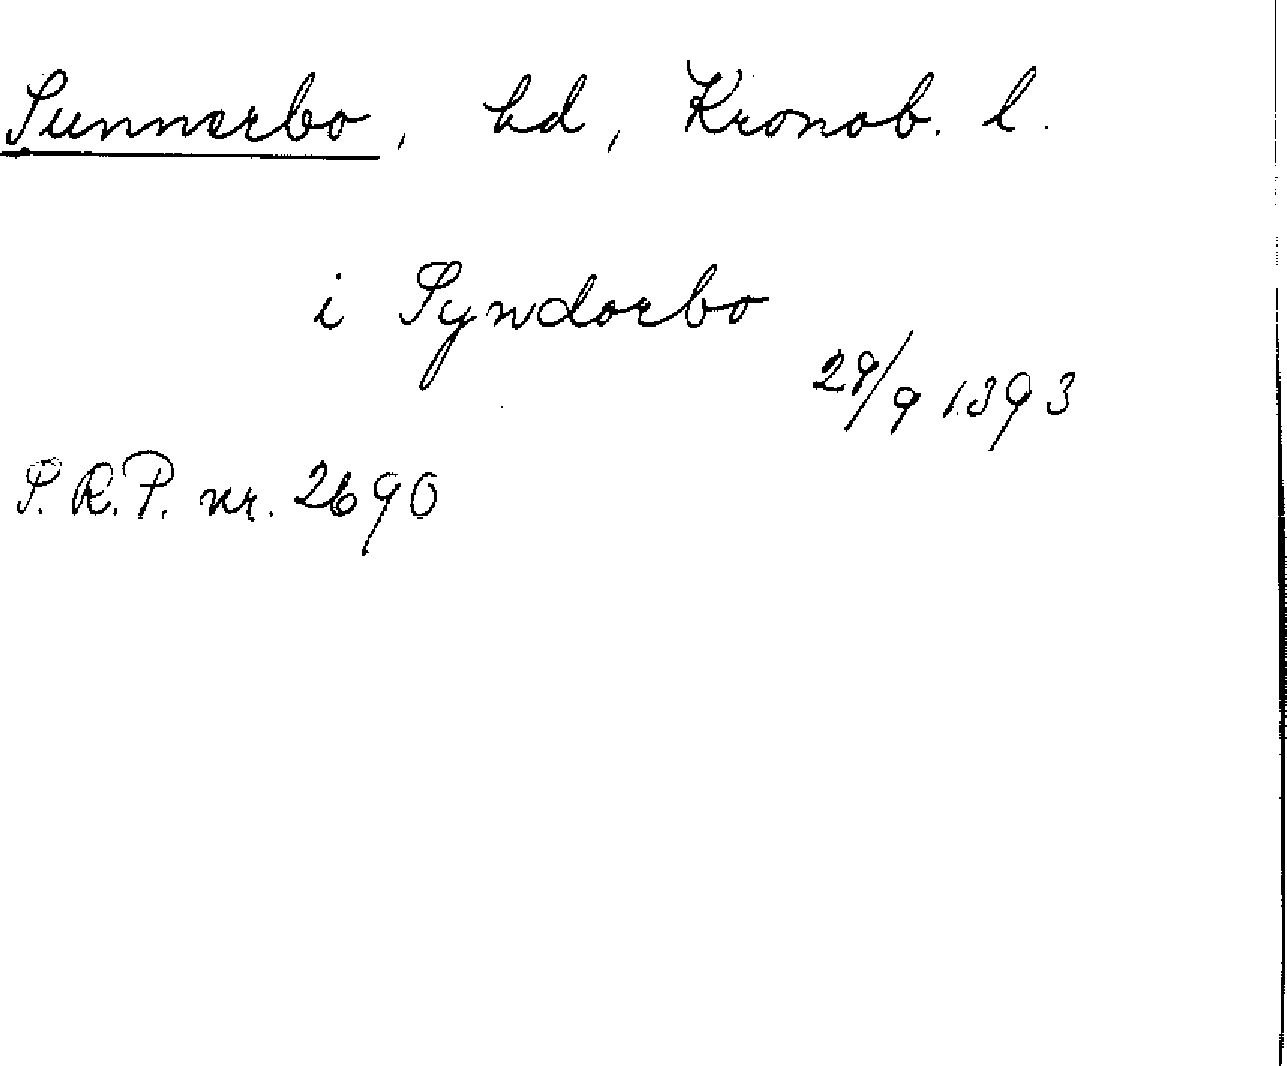 Sunnerbo, hd, Kronob. l.
i Syndorbo
29/9 1393
S.R.P. nr. 2690